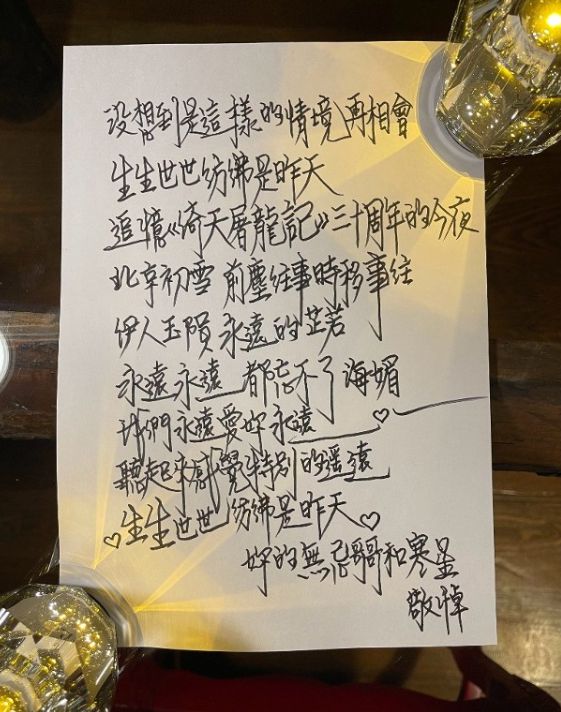 没想到是這樣的情境再相會
生生世世彷彿是昨天
追憶《倚天屠龍記》三十周年的今夜
北京初雪 前塵往事時移事往
伊人玉隕 永遠的芷若
永遠永遠 都忘不了海媚
我們永遠愛妳永遠
聽起來感覺特別的遥遠
生生世世彷彿是昨天
妳的無忌哥哥和寒星
敬悼